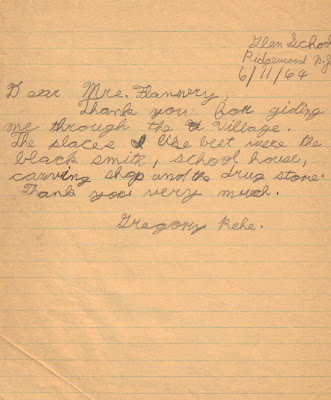 Glen School
Ridgewood N.J.
6/11/64
Dear Mrs. Flannery,
Thank you for giding
me through the Village.
The places I like best were the
black smith, school house,
carving shop and the drug store.
Thank you very much.
Gregory Rehe.